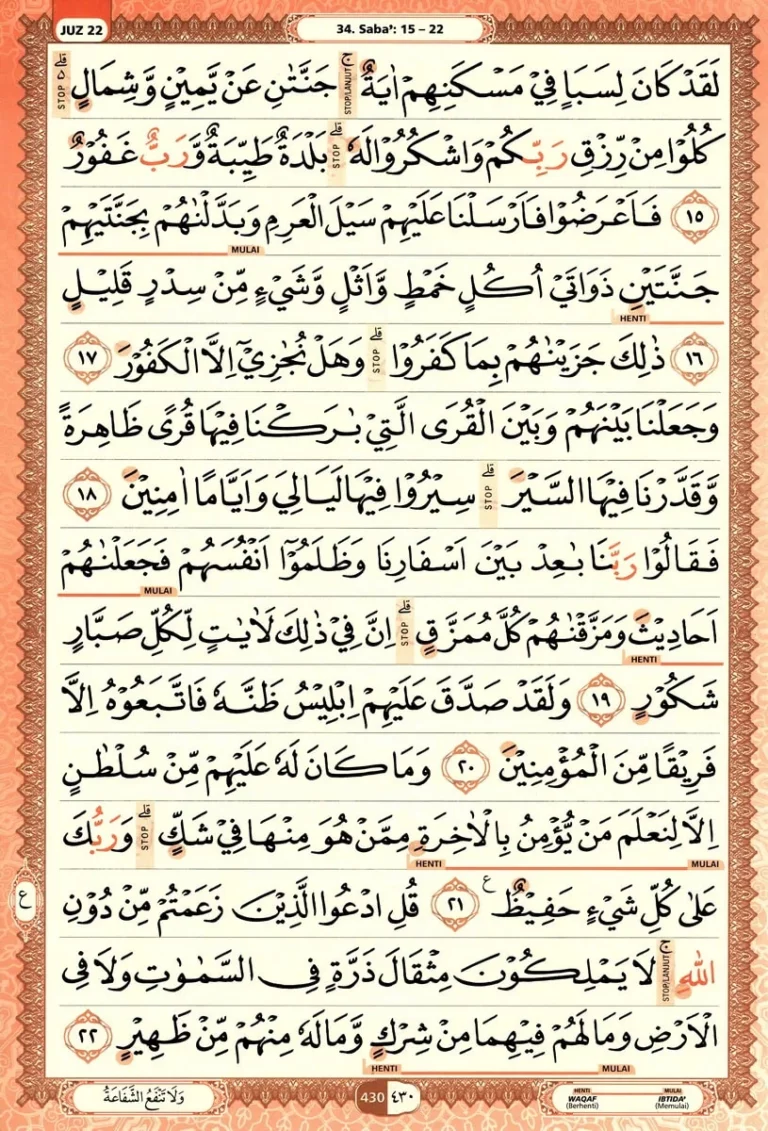 JUZ 22
34. Saba’: 15 – 22
لَقَدْ كَانَ لِسَبَاٍ فِيْ مَسْكَنِهِمْ اٰيَةٌ ۚ جَنَّتٰنِ عَنْ يَّمِيْنٍ وَّشِمَالٍ ەۗ
كُلُوْا مِنْ رِّزْقِ رَبِّكُمْ وَاشْكُرُوْا لَهٗ ۗ بَلْدَةٌ طَيِّبَةٌ وَّرَبٌّ غَفُوْرٌ
١٥ فَاَعْرَضُوْا فَاَرْسَلْنَا عَلَيْهِمْ سَيْلَ الْعَرِمِ وَبَدَّلْنٰهُمْ بِجَنَّتَيْهِمْ
جَنَّتَيْنِ ذَوَاتَيْ اُكُلٍ خَمْطٍ وَّاَثْلٍ وَّشَيْءٍ مِّنْ سِدْرٍ قَلِيْلٍ
١٦ ذٰلِكَ جَزَيْنٰهُمْ بِمَا كَفَرُوْا ۗ وَهَلْ نُجٰزِيْٓ اِلَّا الْكَفُوْرَ ١٧
وَجَعَلْنَا بَيْنَهُمْ وَبَيْنَ الْقُرَى الَّتِيْ بٰرَكْنَا فِيْهَا قُرًى ظَاهِرَةً
وَّقَدَّرْنَا فِيْهَا السَّيْرَ ۗ سِيْرُوْا فِيْهَا لَيَالِيَ وَاَيَّامًا اٰمِنِيْنَ ١٨
فَقَالُوْا رَبَّنَا بٰعِدْ بَيْنَ اَسْفَارِنَا وَظَلَمُوْٓا اَنْفُسَهُمْ فَجَعَلْنٰهُمْ
اَحَادِيْثَ وَمَزَّقْنٰهُمْ كُلَّ مُمَزَّقٍ ۗ اِنَّ فِيْ ذٰلِكَ لَاٰيٰتٍ لِّكُلِّ صَبَّارٍ
شَكُوْرٍ ١٩ وَلَقَدْ صَدَّقَ عَلَيْهِمْ اِبْلِيْسُ ظَنَّهٗ فَاتَّبَعُوْهُ اِلَّا
فَرِيْقًا مِّنَ الْمُؤْمِنِيْنَ ٢٠ وَمَا كَانَ لَهٗ عَلَيْهِمْ مِّنْ سُلْطٰنٍ
اِلَّا لِنَعْلَمَ مَنْ يُّؤْمِنُ بِالْاٰخِرَةِ مِمَّنْ هُوَ مِنْهَا فِيْ شَكٍّ ۗ وَرَبُّكَ
عَلٰى كُلِّ شَيْءٍ حَفِيْظٌ ٢١ ع قُلِ ادْعُوا الَّذِيْنَ زَعَمْتُمْ مِّنْ دُوْنِ
اللّٰهِ ۚ لَا يَمْلِكُوْنَ مِثْقَالَ ذَرَّةٍ فِى السَّمٰوٰتِ وَلَا فِى
الْاَرْضِ وَمَا لَهُمْ فِيْهِمَا مِنْ شِرْكٍ وَّمَا لَهٗ مِنْهُمْ مِّنْ ظَهِيْرٍ ٢٢
STOP
STOP/LANJUT
STOP
MULAI
HENTI
STOP
STOP
MULAI
STOP
HENTI
STOP
MULAI
HENTI
ع
STOP/LANJUT
MULAI
HENTI
وَلَا تَنْفَعُ الشَّفَاعَةُ
430 ٤٣٠
HENTI WAQAF (Berhenti)
MULAI IBTIDA’ (Memulai)